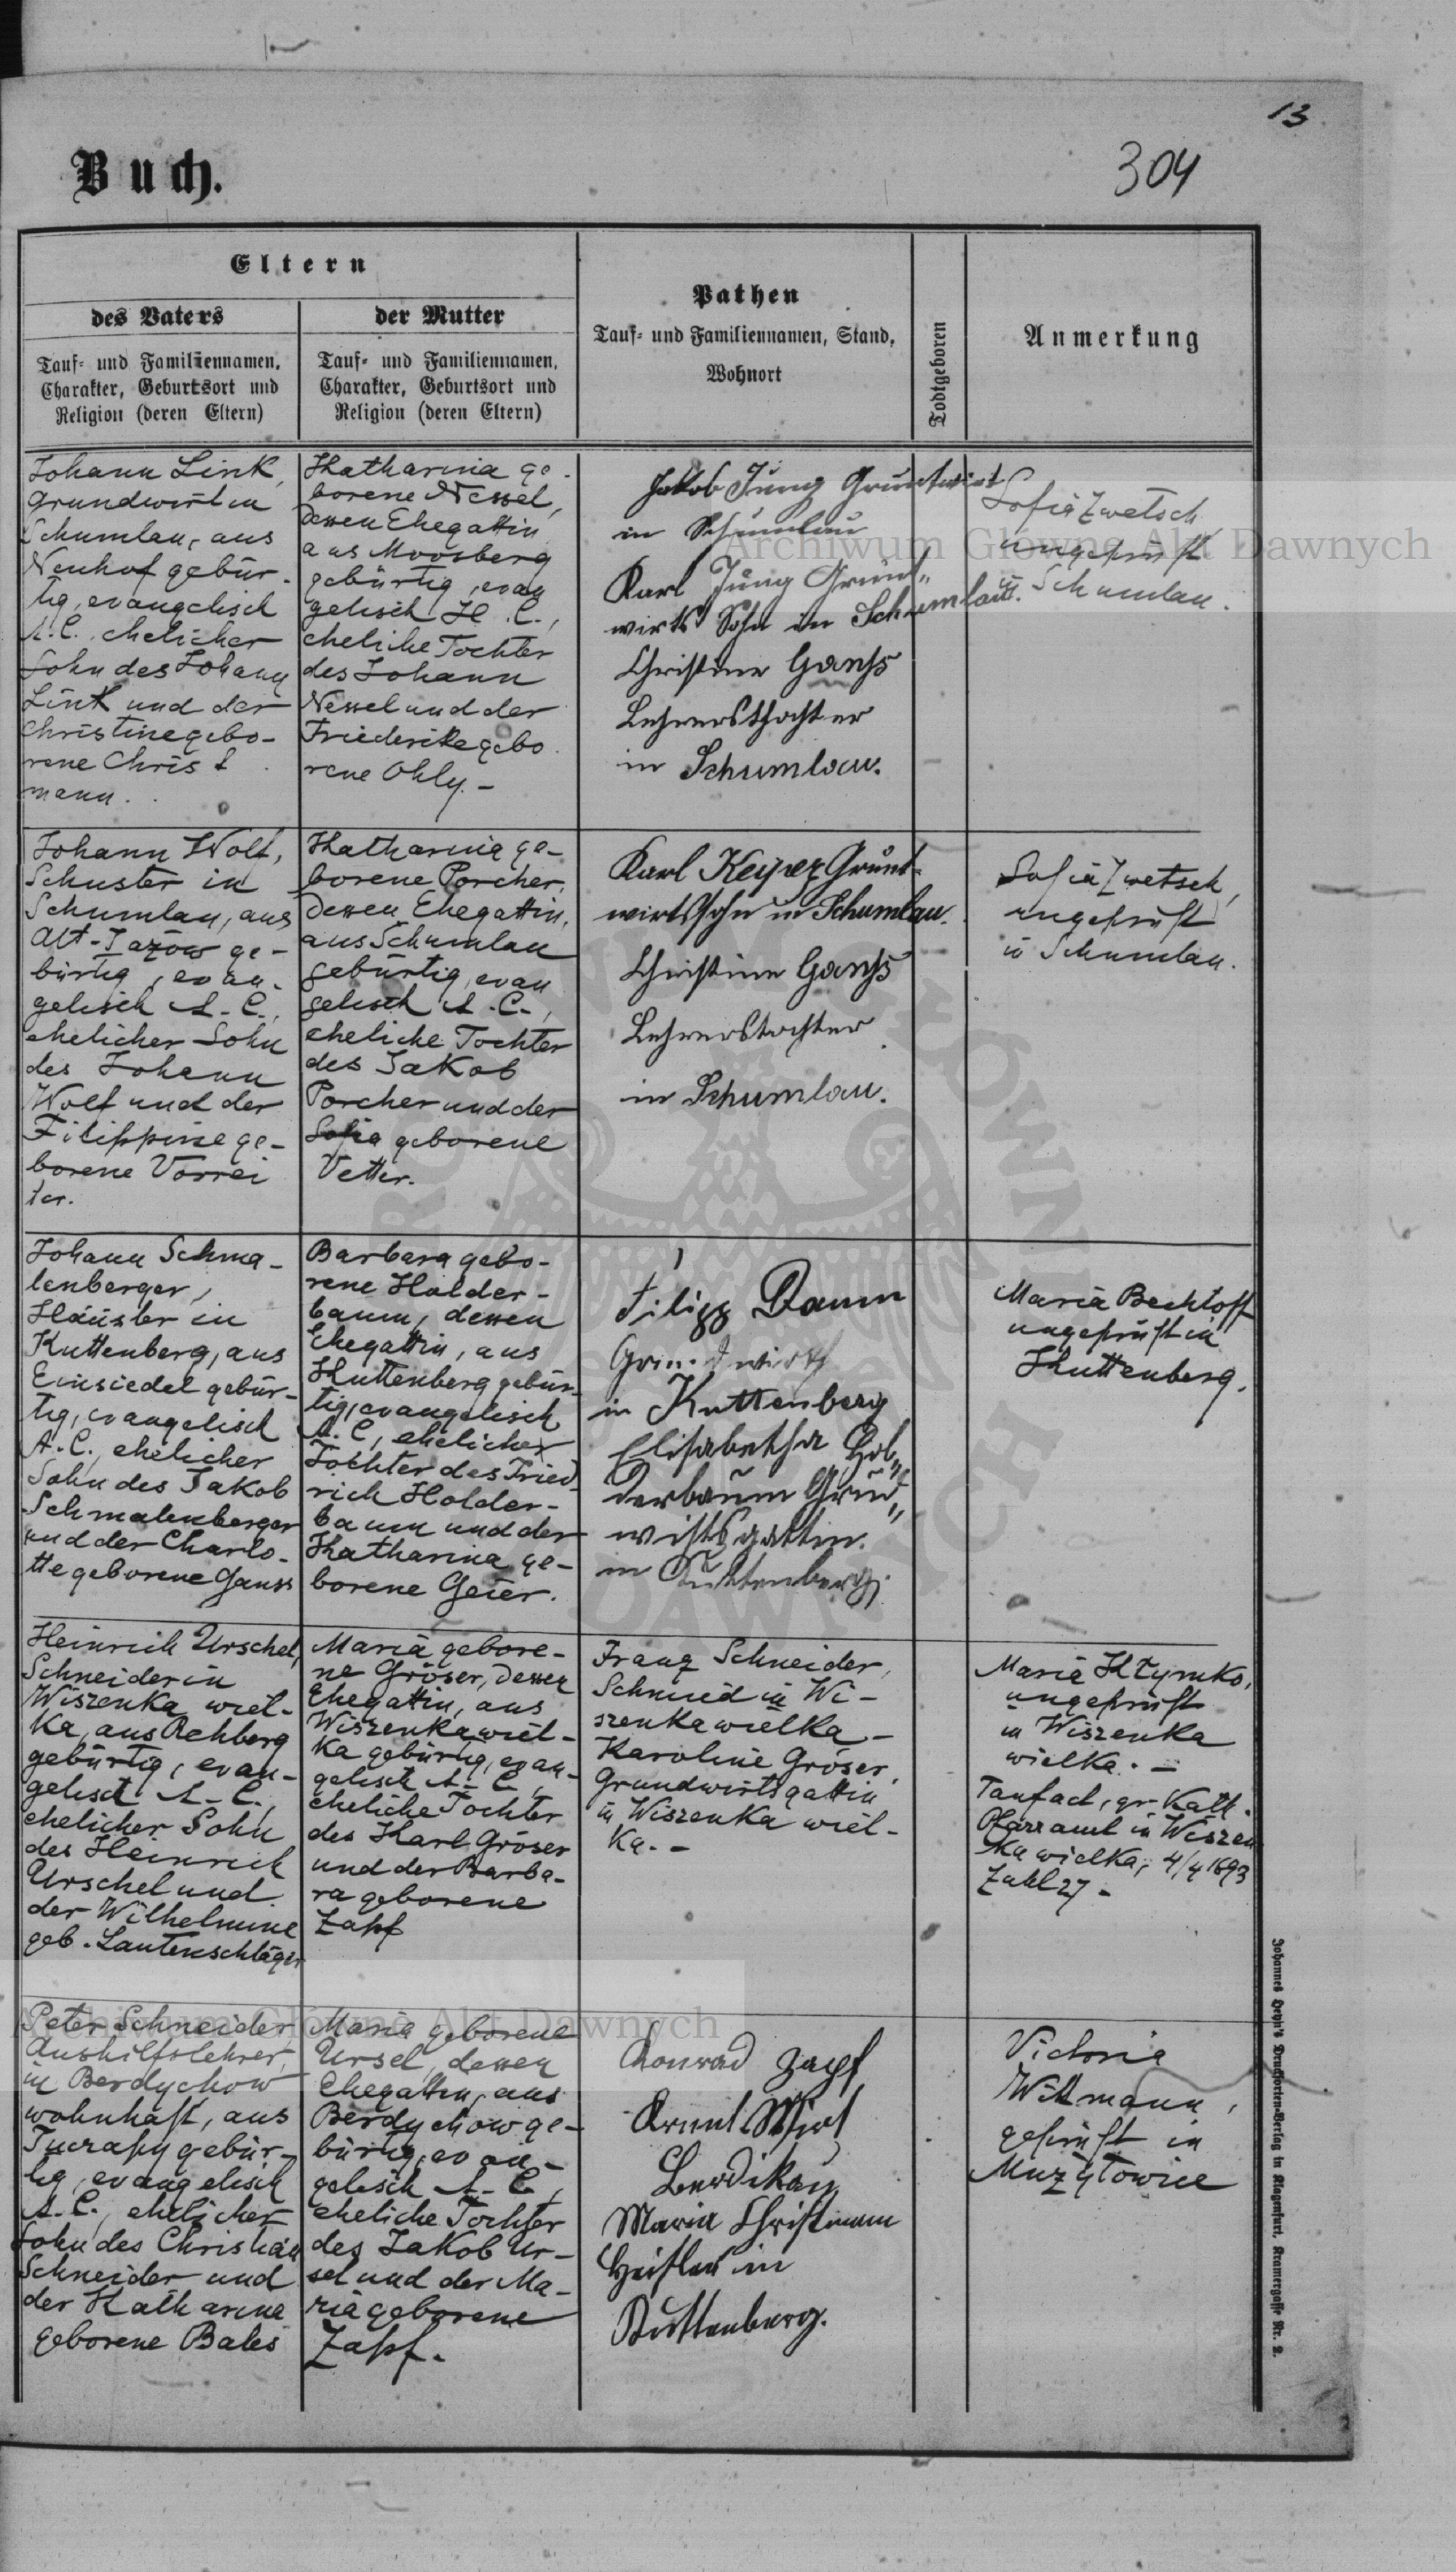 13
304
Buch.
Eltern
des Vaters
Tauf- und Familiennamen,
Charakter, Geburtsort und
Religion (deren Eltern)
der Mutter
Tauf- und Familiennamen,
Charakter, Geburtsort und
Religion (deren Eltern)
Pathen
Tauf- und Familiennamen, Stand,
Wohnort
Todtgeboren
Anmerkung
Johann Link,
Grundwirt in
Schumlau, aus
Neuhof gebür-
tig, evangelisch
A. C. ehelicher
Sohn des Johann
Link und der
Christine gebo-
rene Christ
mann.
Katharina ge-
borene Nessel,
dessen Ehegattin
aus Moosberg
gebürtig, evan
gelisch H. C.,
eheliche Tochter
des Johann
Nessel und der
Friederike gebo
rene Ohly.-
Jakob Jung Gruntwirt
in Schumlau
Karl Jung Grunt-
wirts Sohn in Schumlau.
Christine Ganhs
Lehrersthochter
in Schumlau.
Sofia Zwetsch
ungeprüft
in Schumlau.
Johann Wolf,
Schuster in
Schumlau, aus
Alt-Jazów ge-
bürtig, evan-
gelisch A. C.,
ehelicher Sohn
des Johann
Wolf und der
Filippine ge-
borene Vorrei
ter.
Katharina ge-
borene Porcher,
dessen Ehegattin,
aus Schumlau
gebürtig, evan
gelisch A. C.,
eheliche Tochter
des Jakob
Porcher und der
Sofia geborene
Vetter.
Karl Keiper Grunt-
wirtssohn in Schumlau.
Christine Ganhs
Lehrerstochter
in Schumlau.
Sofia Zwetsch,
ungeprüft
in Schumlau.
Johann Schma-
lenberger,
Häusler in
Kuttenberg, aus
Einsiedel gebür-
tig, evangelisch
A. C., ehelicher
Sohn des Jakob
Schmalenberger
und der Charlo-
tte geborene Gauss
Barbara gebo-
rene Holder-
baum, dessen
Ehegattin, aus
Kuttenberg gebür-
tig, evangelisch
A. C., ehelicher
Tochter des Fried
rich Holder-
baum und der
Katharina ge-
borene Geier.
Filipp Daum
Grundwirth
in Kuttenberg
Elisabetha Hol„
derbaum Grund„
wirtsgattin.
in Kuttenberg.
Maria Bechtloff
ungeprüft in
Kuttenberg.
Heinrich Urschel,
Schneider in
Wiszenka wiel-
ka, aus Rehberg
gebürtig, evan-
gelisch A. C.,
ehelicher Sohn
des Heinrich
Urschel und
der Wilhelmine
geb. Lautenschläger
Maria gebore-
ne Gröser, dessen
Ehegattin, aus
Wiszenka wiel-
ka gebürtig, evan-
gelisch A. C.,
eheliche Tochter
des Karl Gröser
und der Barba-
ra geborene
Zapf
Franz Schneider,
Schmied in Wi-
szenka wielka -
Karoline Gröser,
Grundwirtsgattin
in Wiszenka wiel-
ka. -
Maria Kłymko,
ungeprüft
in Wiszenka
wielka. -
Taufact, gr. Kath.
Pfarramt in Wiszen
ka wielka, 4/4 1893
Zahl 27 -
Peter Schneider
Aushilfslehrer,
in Berdychow
wohnhaft, aus
Tucrapy gebür-
tig, evangelisch
A. C., ehelicher
Sohn des Christian
Schneider und
der Katharina
geborene Bales
Maria geborene
Ursel, dessen
Ehegattin, aus
Berdychow ge-
bürtig, evan-
gelisch A. C.,
eheliche Tochter
des Jakob Ur-
sel und der Ma-
ria geborene
Zapf.
Konrad Zapf
Grunt Wirt
Berdikau
Maria Christmann
Heisler in
Kuttenberg.
Victoria
Wittmann,
geprüft in
Muzyłowice
Johannes Heyn's Drucksorten-Verlag in Klagenfurt, Kramergasse Nr. 2.
Archiwum Główne Akt Dawnych
Archiwum Główne Akt Dawnych